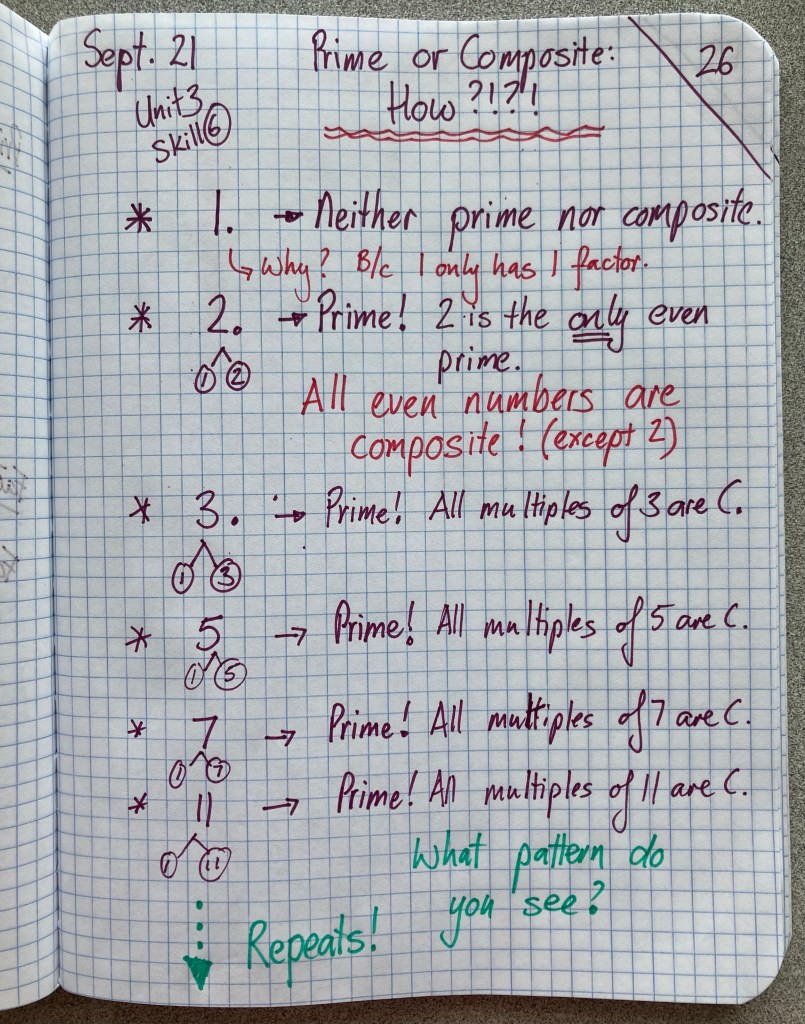 Sept. 21
Prime or Composite:
26
Unit 3
Skill 6
How ?!?!
* 1. → Neither prime nor composite.
↳ Why? B/c 1 only has 1 factor.
* 2. → Prime! 2 is the only even
prime.
1 2
All even numbers are
composite! (except 2)
* 3. → Prime! All multiples of 3 are C.
1 3
* 5 → Prime! All multiples of 5 are C.
1 5
* 7 → Prime! All multiples of 7 are C.
1 7
* 11 → Prime! All multiples of 11 are C.
1 11
What pattern do
you see?
Repeats!